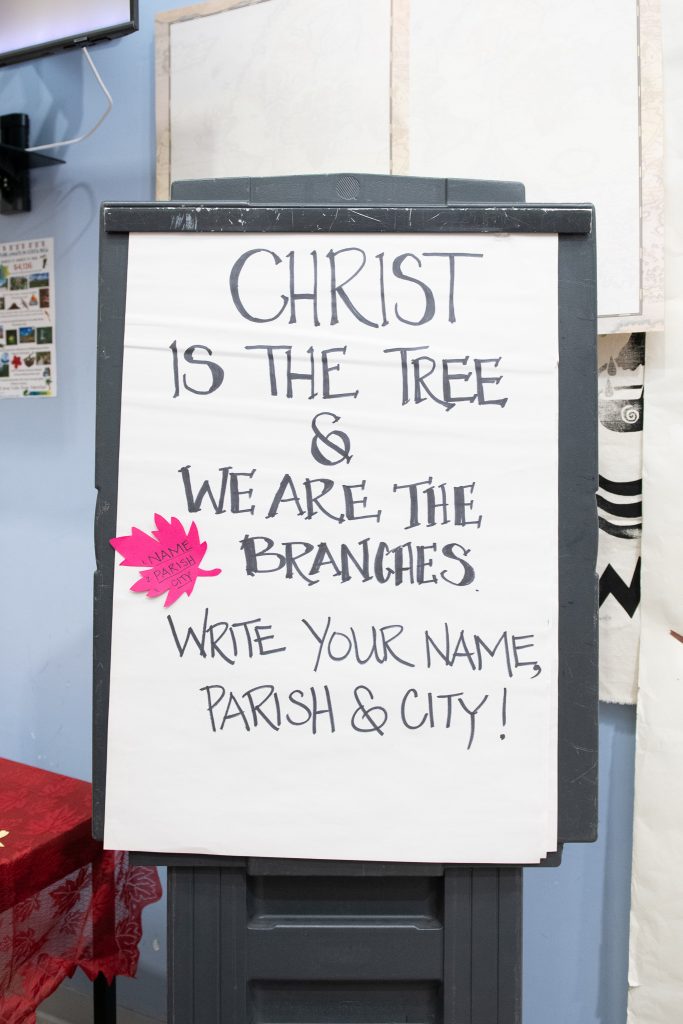 CHRIST
IS THE TREE
&
WE ARE THE
BRANCHES.
NAME
PARISH
CITY
WRITE YOUR NAME,
PARISH & CITY!